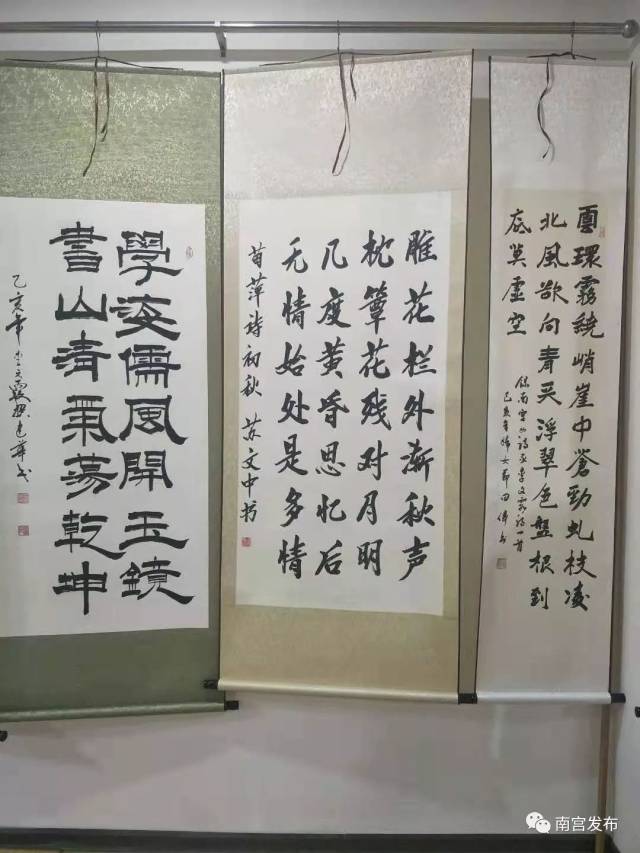 雲環霧繞峭崖中蒼勁虬枝凌
北風欲向青天浮翠色盤根到
底莫虛空
李文霞詩一首
己亥年
雕花栏外渐秋声
枕簟花残对月明
几度黄昏思忆后
无情始处是多情
苗萍诗初秋 苏文中书
學海儒風開玉鏡
書山清氣蕩乾坤
乙亥年李文霞
南宫发布